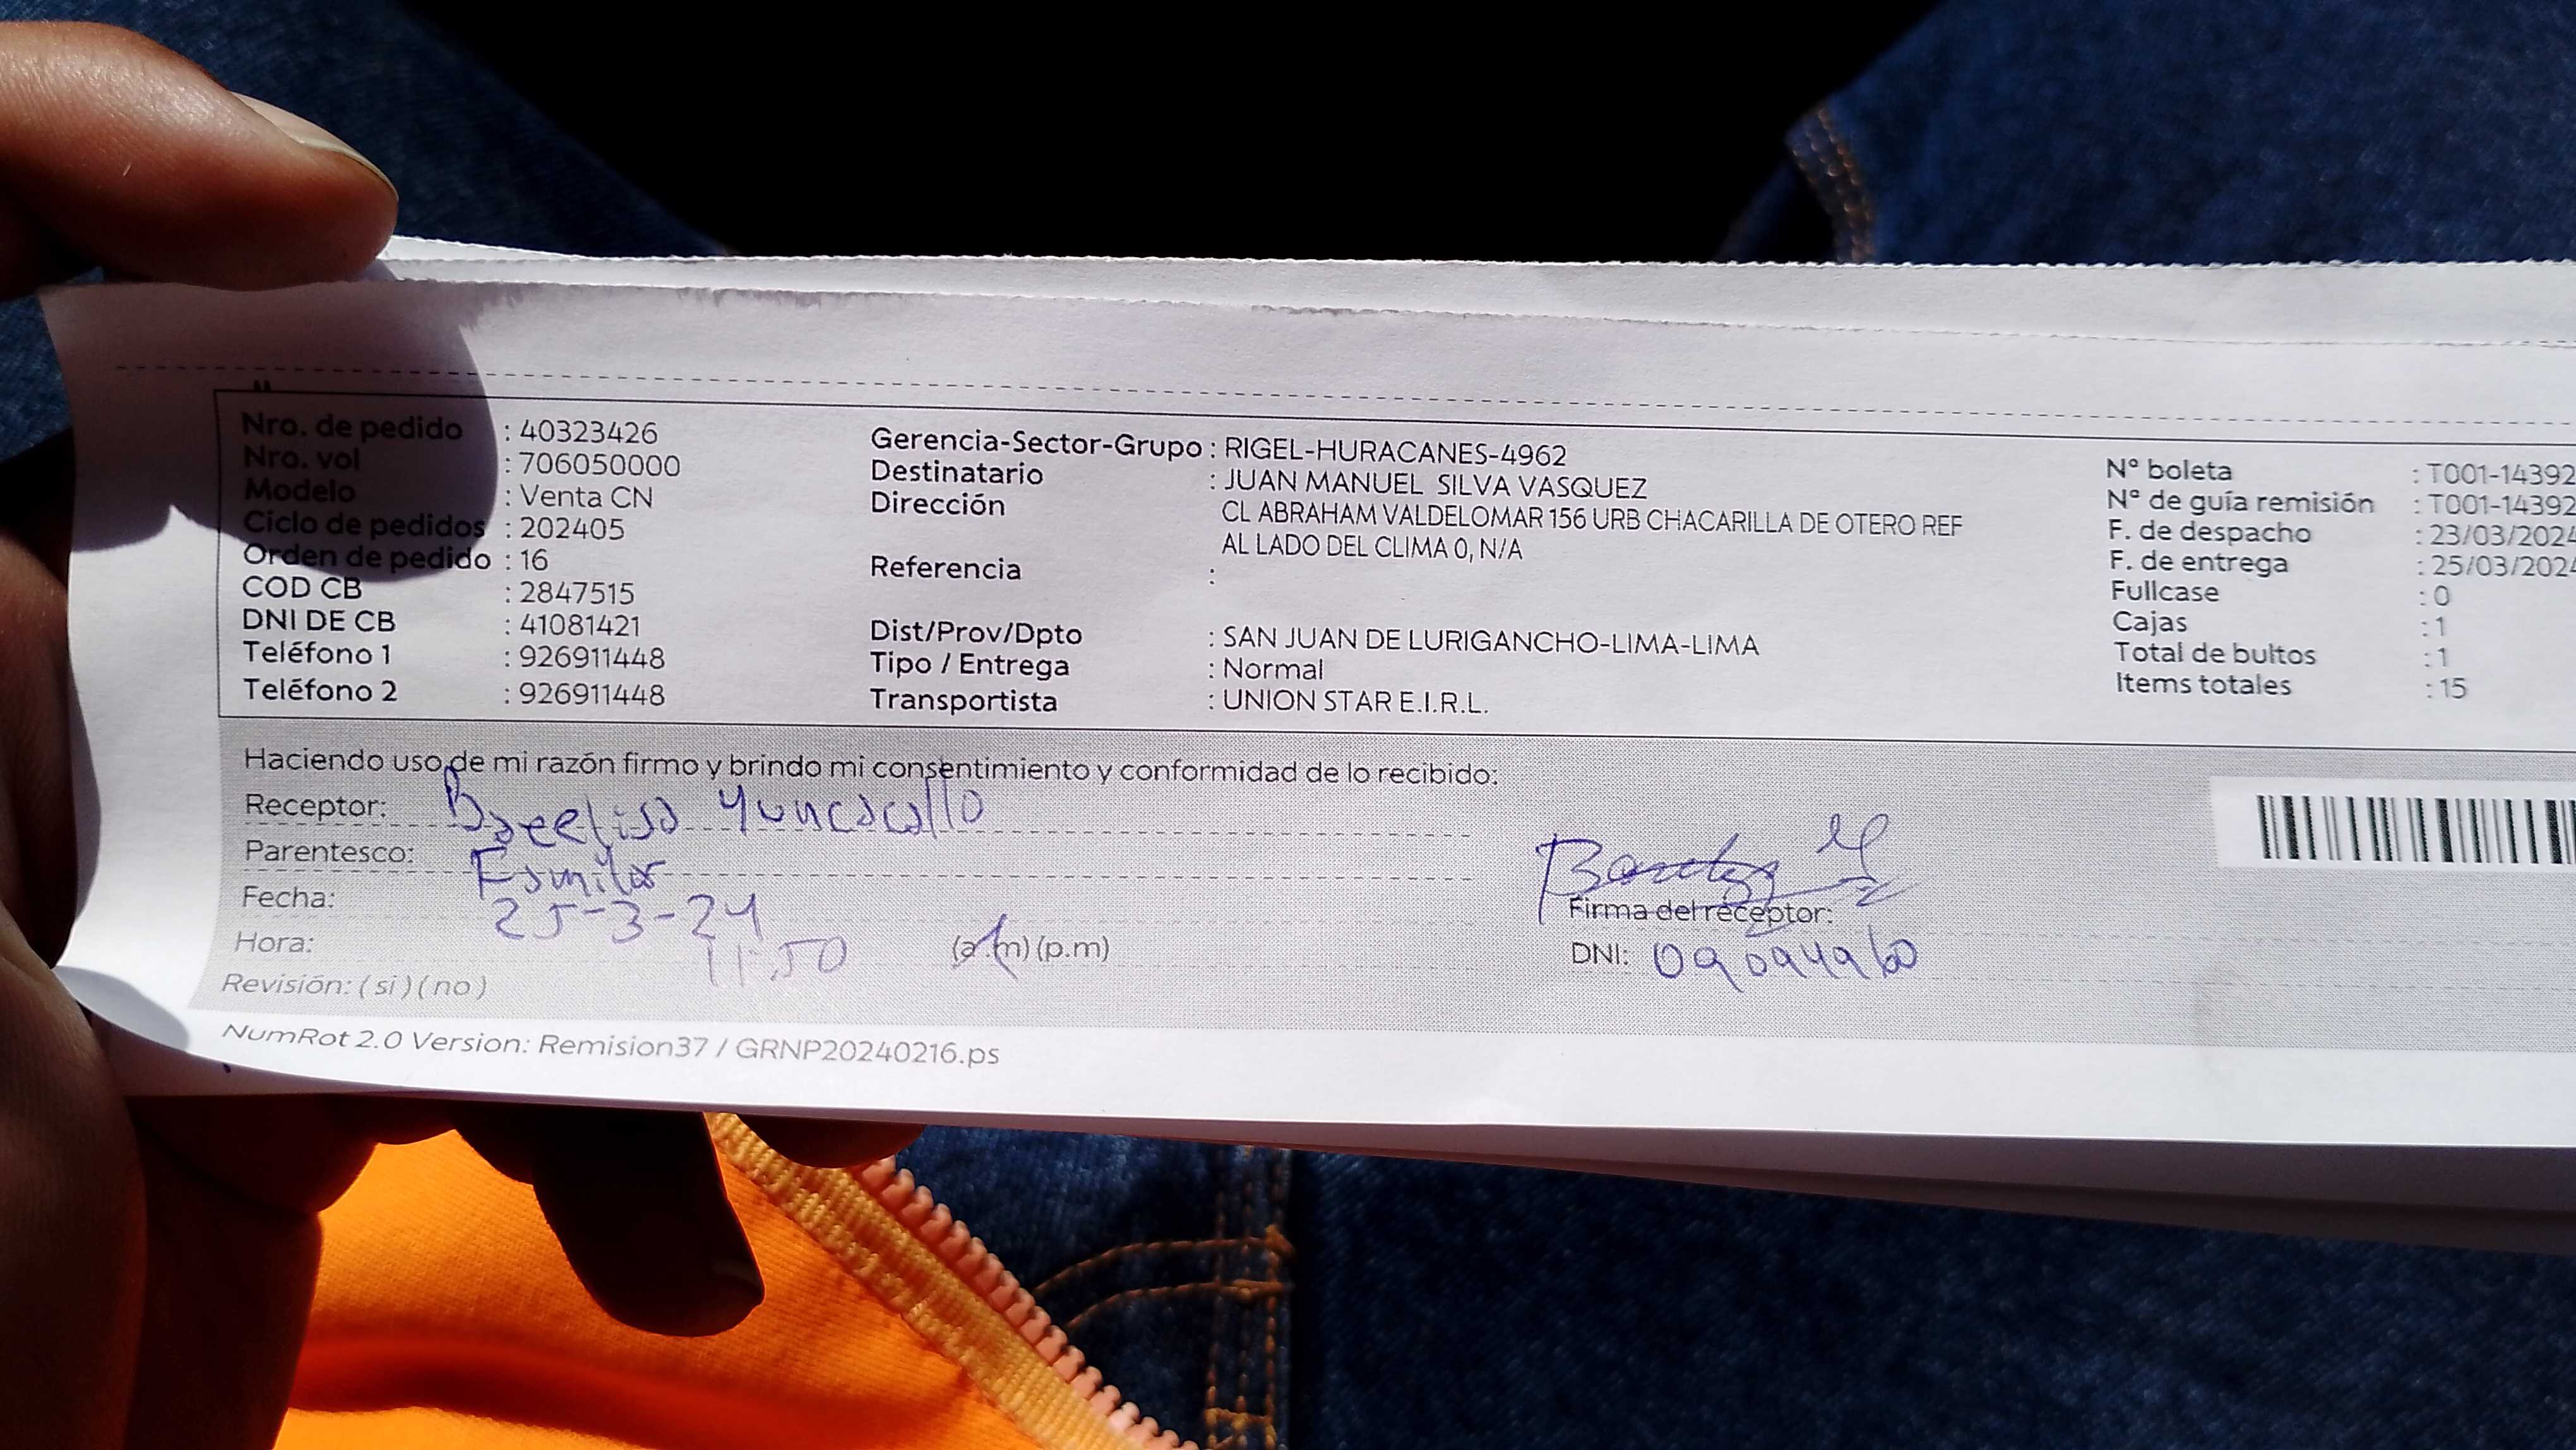 Nro. de pedido : 40323426
Nro. vol : 706050000
Modelo : Venta CN
Ciclo de pedidos : 202405
Orden de pedido : 16
COD CB : 2847515
DNI DE CB : 41081421
Teléfono 1 : 926911448
Teléfono 2 : 926911448
Gerencia-Sector-Grupo : RIGEL-HURACANES-4962
Destinatario : JUAN MANUEL SILVA VASQUEZ
Dirección : CL ABRAHAM VALDELOMAR 156 URB CHACARILLA DE OTERO REF
AL LADO DEL CLIMA 0, N/A
Referencia :
Dist/Prov/Dpto : SAN JUAN DE LURIGANCHO-LIMA-LIMA
Tipo / Entrega : Normal
Transportista : UNION STAR E.I.R.L.
N° boleta : T001-14392
N° de guía remisión : T001-14392
F. de despacho : 23/03/2024
F. de entrega : 25/03/2024
Fullcase : 0
Cajas : 1
Total de bultos : 1
Items totales : 15
Haciendo uso de mi razón firmo y brindo mi consentimiento y conformidad de lo recibido:
Receptor: Yuncacallo
Parentesco: Familiar
Fecha: 25-3-24
Hora: 11:50 (a.m) (p.m)
Revisión: ( si ) ( no )
Firma del receptor:
DNI: 09094960
NumRot 2.0 Version: Remision37 / GRNP20240216.ps